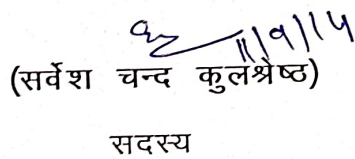 11/9/14
(सर्वेश चन्द कुलश्रेष्ठ)
सदस्य